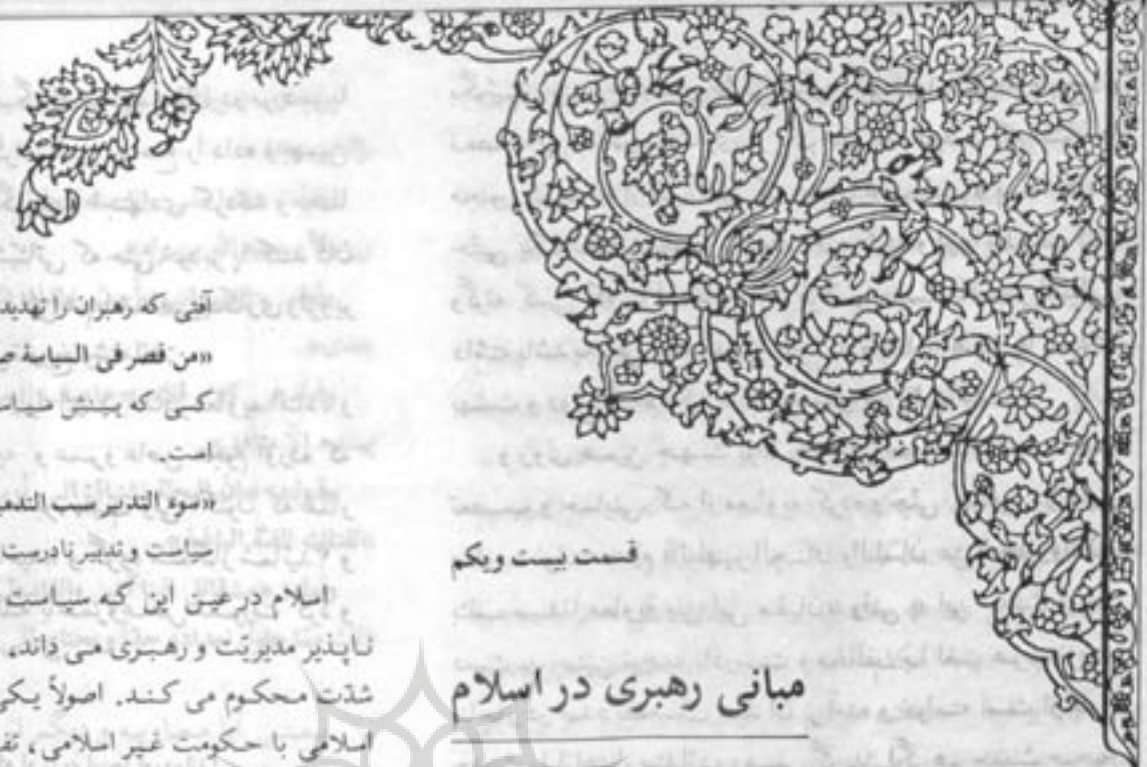 قسمت بیست ویکم
مبانی رهبری در اسلام
آفتی که رهبران را تهدید
«من قصر فی السیاسة
کسی که بینش سیاس
است.
«سوء التدبیر سبب التدم
سیاست و تدبیر نادرست
اسلام در عین این که سیاست
ناپذیر مدیریّت و رهبری می داند،
شدّت محکوم می کند. اصولاً یکی
اسلامی با حکومت غیر اسلامی، تف